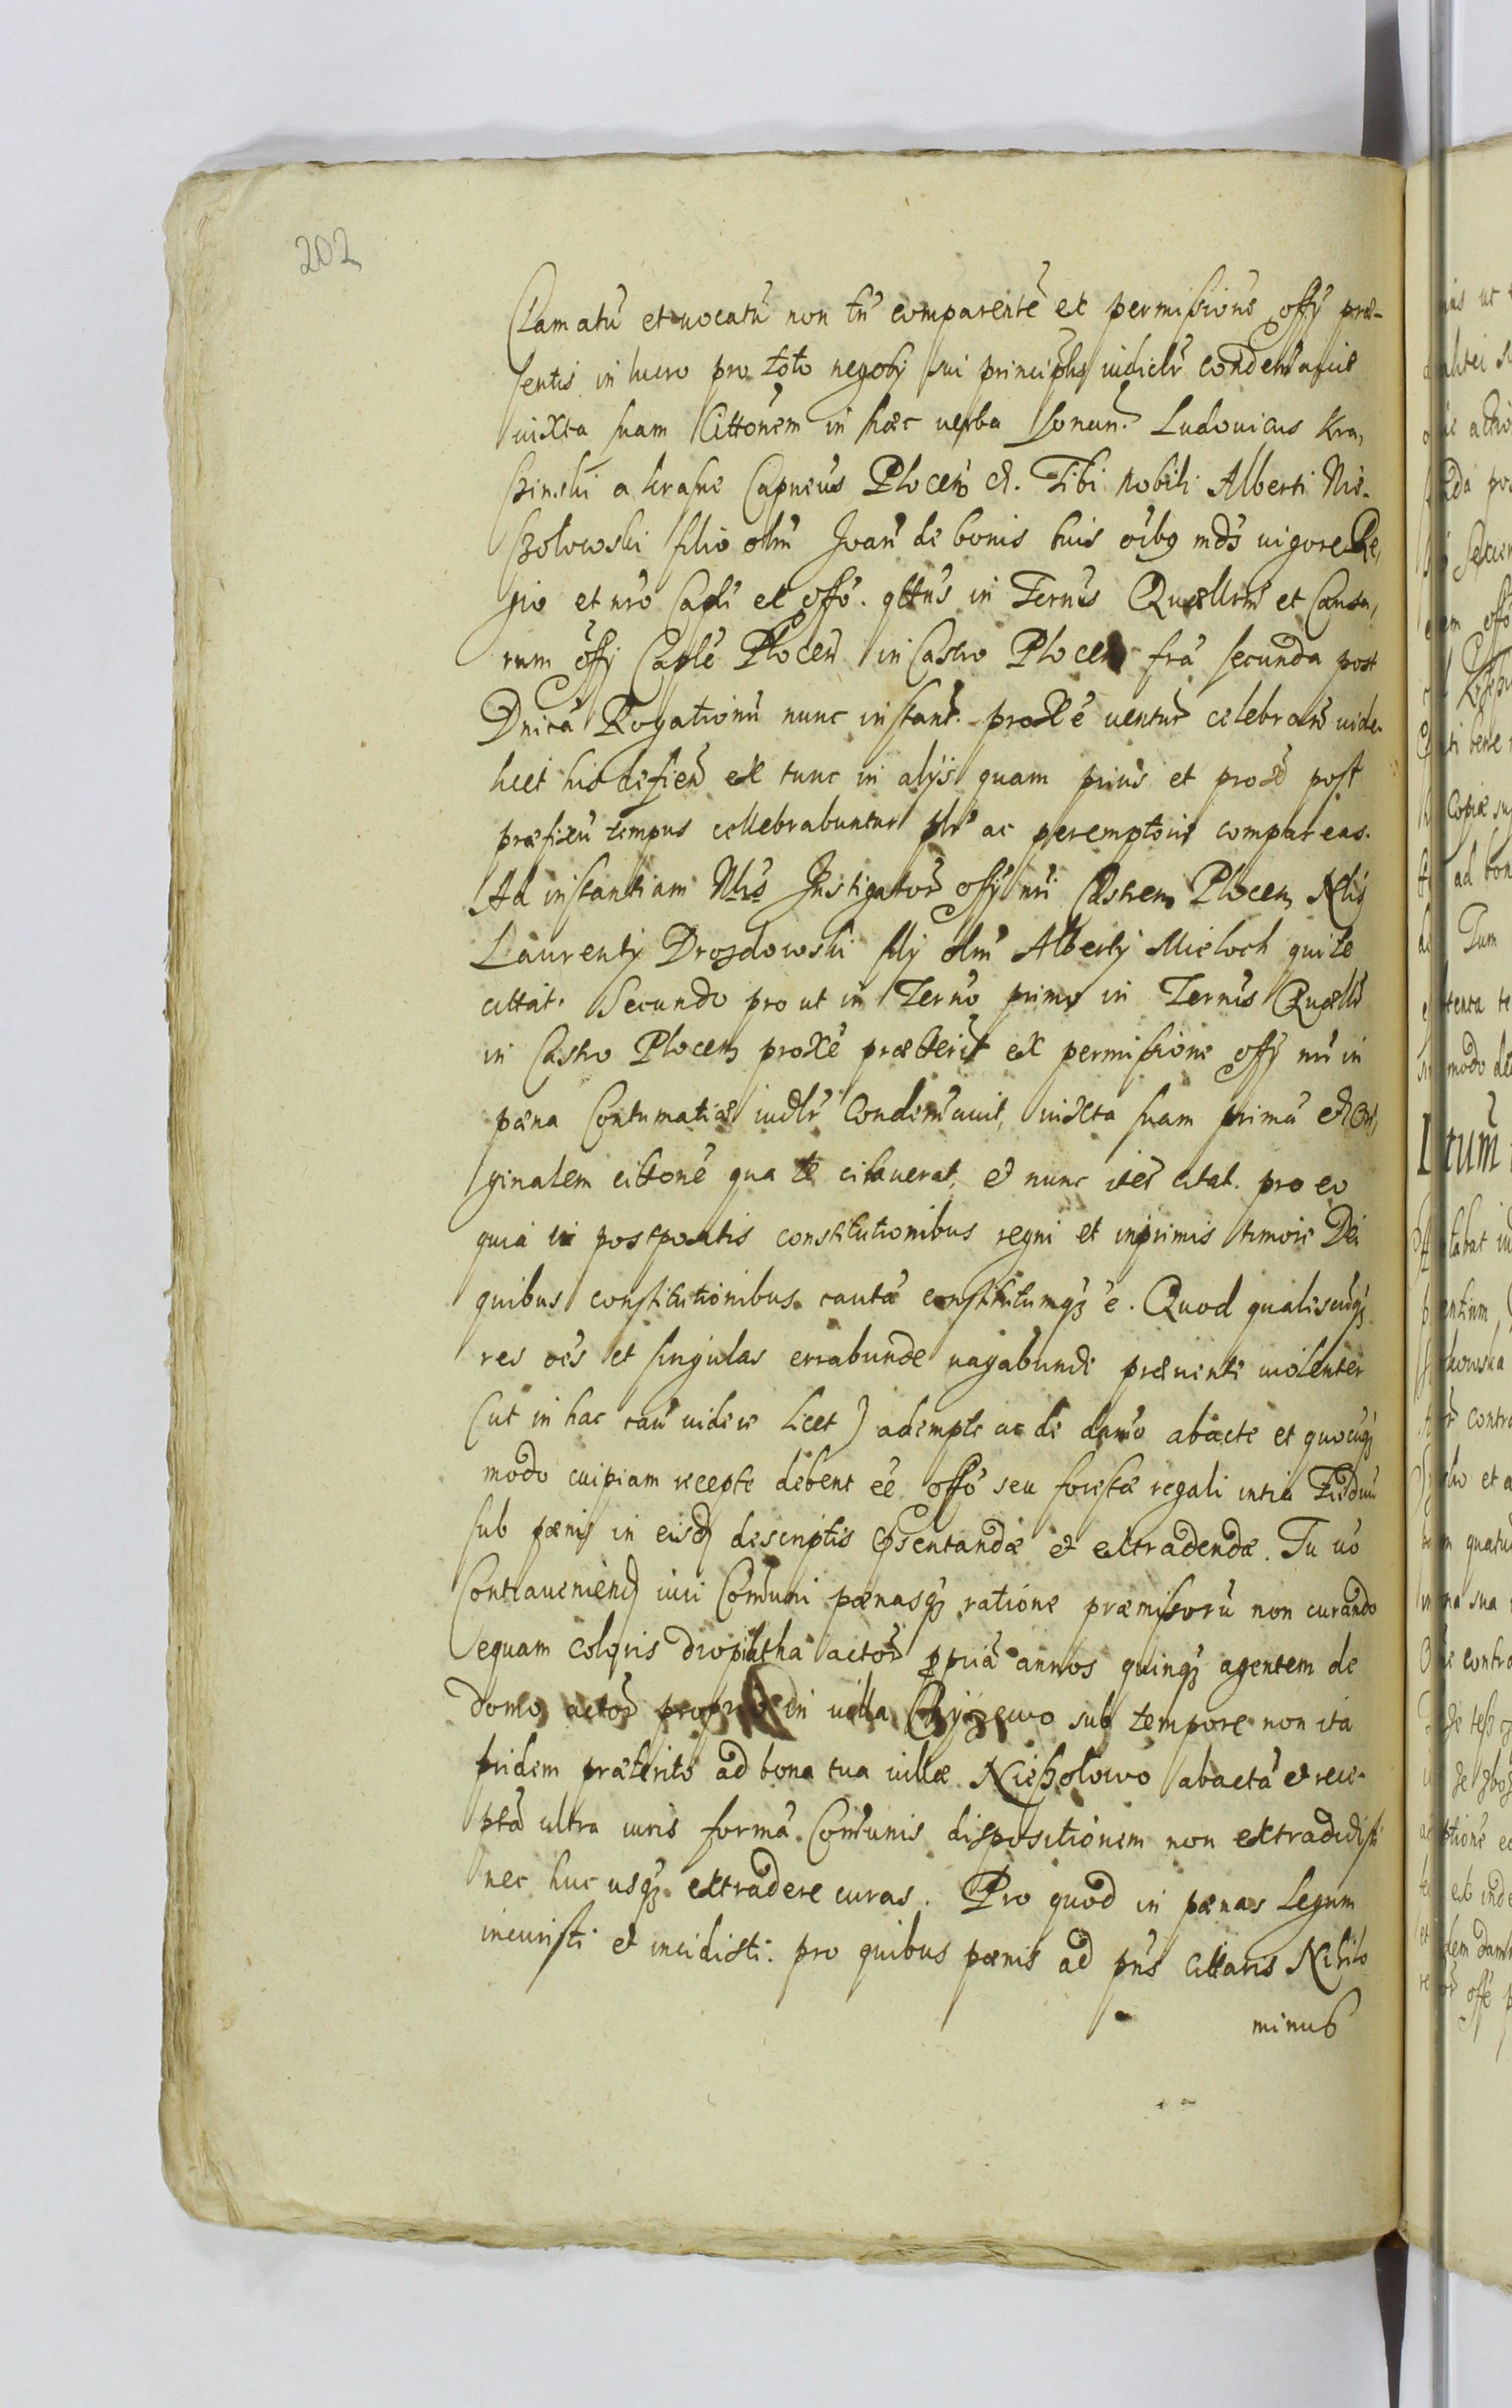 202
Clamatu᷑ et uocatu᷑ non tn᷑ comparente᷑ ex permissione offy præ-
sentis in lucro pro toto negoty sui principlis iudiclr condemnauit
iuxta suam Cittonem in hæc uerba sonan. Ludouicus Kra,
szinski a krasne Capneus Plocen &. Tibi nobili Alberti Nie-
szolowski filio olm Joan de bonis tuis oibq mds uigore Re,
gio et nro Capli et offo. qttus in Ternis Quællrm et Causa,
rum offy Caple Plocen in Castro Plocen fra secunda post
Dnica Rogationu nunc instant. proxe uentur celebran uide-
licet hic defien ex tunc in alys quam prius et prox post
præfixu tempus cellebrabuntur plr ac peremptorie compareas.
Ad instantiam Nlis Instigator offy nri Castren Plocen Nlis
Laurenty Drozdowski fily olm Alberty Mieloch qui te
cittat. Secundo pro ut in Terno primo in Ternis Quælls
in Castro Plocen proxe præterit ex permissione offy nri in
pæna Contumatiæ iudlr Condemnauit, iuxta suam prima et Ori,
ginalem cittone qua te citauerat, et nunc iter citat. pro eo
quia in postpositis constitutionibus regni et inprimis timore Dei
quibus constitutionibus cauta constitutumq e. Quod qualiscuq
res oes et singulas errabunde uagabunde præuente uiolenter
(ut in hac cau uidere licet) adempte ac de domo abacte et quocuq
modo cuipiam recepte debent ee offo seu forestæ regali intra Tridnu
sub pænis in eisd descriptis psentandæ et extradendæ. Tu uo
Contraueniend iuri Comuni pænasq ratione præmissoru non curando
equam coloris dropiatha actor ppria annos quinq agentem de
domo actor propria in uilla Chyzewo sub tempore non ita
pridem præterito ad bona tua uillæ Nieszolowo abacta et rece-
pta ultra iuris forma Comunis dispositionem non extradidisti
nec huc usq extradere curas. Pro quod in pænas Legum
incuristi et incidisti. pro quibus pænis ad pns cittaris Nihilo
minus